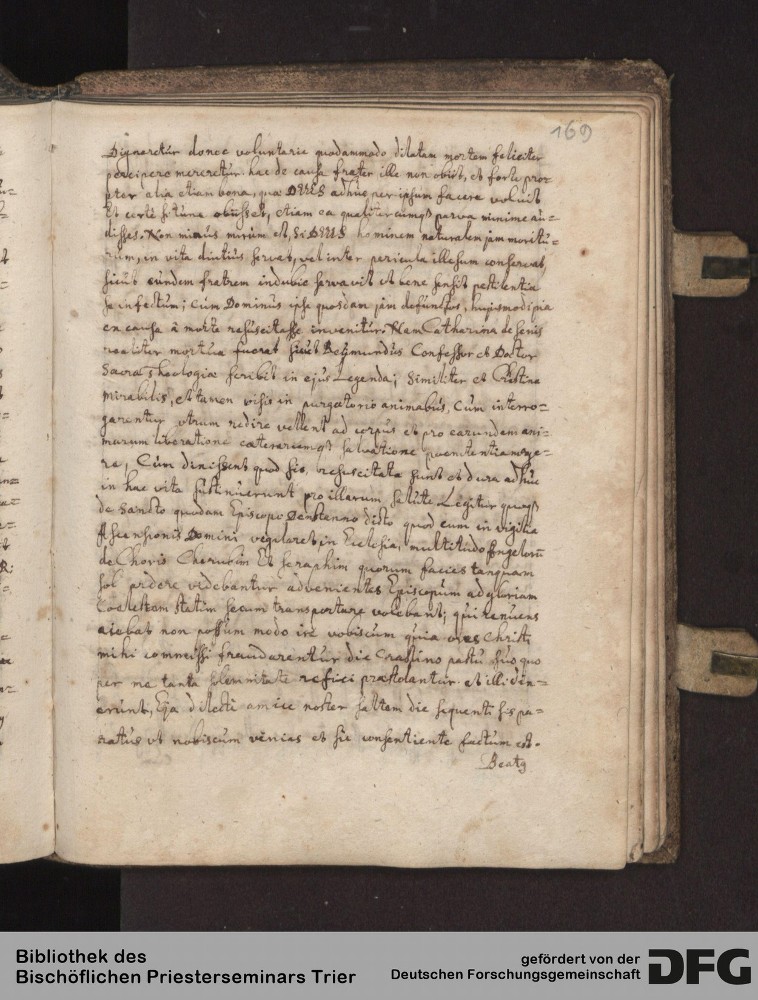 169
Dignaretur donec voluntarie quodammodo dilatam mortem feliciter
percipere mereretur. hac de causa frater ille non obiit, et forte prop
pter alia etiam bona, quæ DNUS adhuc per ipsum facere voluit
Et certe si tuna obiisset, etiam ea qualitercumqs parva minime au=
disses. Non minus mirum est, si DNUS hominem naturalem jam moritu=
rum, in vita diutius servat, vel inter pericula illesum conservat,
sicut eundem fratrem indubie servavit et bene sensit pestilentia
se infectum; Cum Dominus ipse quosdam jam defunctos, hujusmodi pia
ex causa à morte resuscitasse invenitur. Nam Catharina de senis
realiter mortua fuerat sicut Reymundus Confessor et Doctor
Sacræ Theologiæ scribit in ejus Legenda; Similiter et Cristina
mirabilis, et tamen visis in purgatorio animabus, Cum interro=
garentur utrum redire vellent ad corpus et pro earundem ani=
marum liberatione cæterarumqs salvatione pœnitentiam age=
re, Cum dixissent quod sic, resuscitatæ sunt et dura adhuc
in hac vita sustinuerunt pro illarum salute Legitur quoqs
de Sancto quodam Episcopo Denstanno dicto quod cum in vigilia
Ascensionis Domini vigilaret in Ecclesia, multitudo Angelorū
de Choris Cherubim Et seraphim quorum facies tanquam
sol ardere videbantur advenientes Episcopum ad gloriam
Coelestem statim secum transportare volebant; qui renuens
aiebat non possum modo ire vobiscum quia oves Christi
mihi commissi fraudarentur die Crastino pastu suo quo
per me tanta solemnitate refici præstolantur. et illi dix=
erunt, Eja dilecti amice noster saltem die sequenti sis pa=
ratus ut nobiscum venias et sic consentiente factum est.
Beatq
Bibliothek des
Bischöflichen Priesterseminars Trier
gefördert von der
Deutschen Forschungsgemeinschaft
DFG